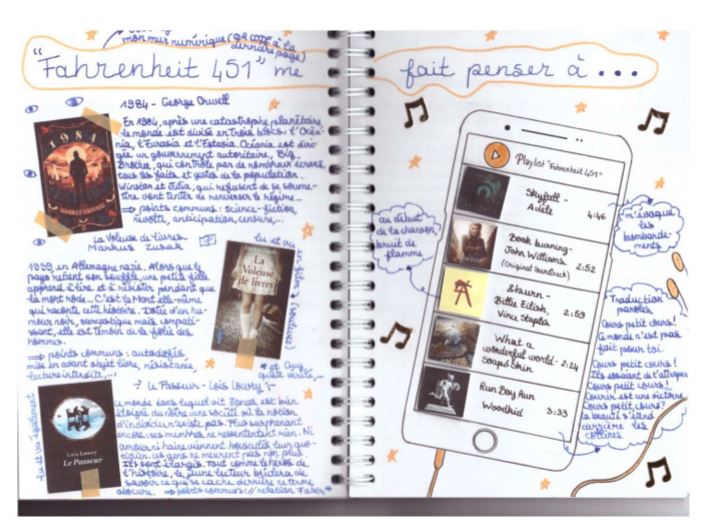 mon mur numérique (QR CODE à la
dernière page)
"Fahrenheit 451" me
fait penser à ...
1984 - George Orwell
En 1984, après une catastrophe planétaire
le monde est divisé en trois blocs : l'Océa-
nia, l'Eurasia et l'Estasia. Océania est diri-
gée un gouvernement autoritaire, Big
Brother, qui contrôle par de nombreux écrans
tous les faits et gestes de la population.
Winston et Julia, qui refusent de se soume-
ttre vont tenter de renverser le régime...
⇒ points communs : science-fiction,
révolte, anticipation, censure...
1984
GEORGE ORWELL
La Voleuse de livres -
Markus Zusak
lu et vu
La
Voleuse
de livres
1939, en Allemagne nazie. Alors que le
pays retient son souffle, une petite fille
apprend à lire et à résister pendant que
la mort rôde... C'est la Mort elle-même
qui raconte cette histoire. Dotée d'un hu-
mour noir, sarcastique mais compati-
ssant, elle est témoin de la folie des
hommes.
⇒ points communs : autodafés,
mise en avant objet livre, résistance,
lecture interdit,...
Le Passeur - Lois Lowry
lu et vu également
Lois Lowry
Le Passeur
Le monde dans lequel vit Jonas est bien
éloigné du nôtre : une société où la notion
d'individu n'existe pas. Plus surprenant
encore : ses membres ne ressentent rien. Ni
amour ni haine viennent
les gens ne meurent pas non plus.
Ils sont élargis. Tout comme le héros de
l'histoire, le jeune lecteur brûlera de
savoir ce qui se cache derrière ce terme
obscur. ⇒ points communs : // relation Faber
Playlist "Fahrenheit 451"
Skyfall -
Adele
4:46
Book burning -
John Williams
(original soundtrack)
2:52
&burn -
Billie Eilish,
Vince Staples
2:59
What a
wonderful world -
Soap&Skin
2:24
Run Boy Run
Woodkid
3:33
au début
de la chanson
bruit de
flamme
m'évoque
les
bombarde-
ments
Traduction
paroles
Cours petit cours !
Ce monde n'est pas
fait pour toi.
Cours petit cours !
Ils essaient de t'attraper
Cours petit cours !
Courir est une victoire
Cours petit cours !
la beauté s'étend
derrière les
collines